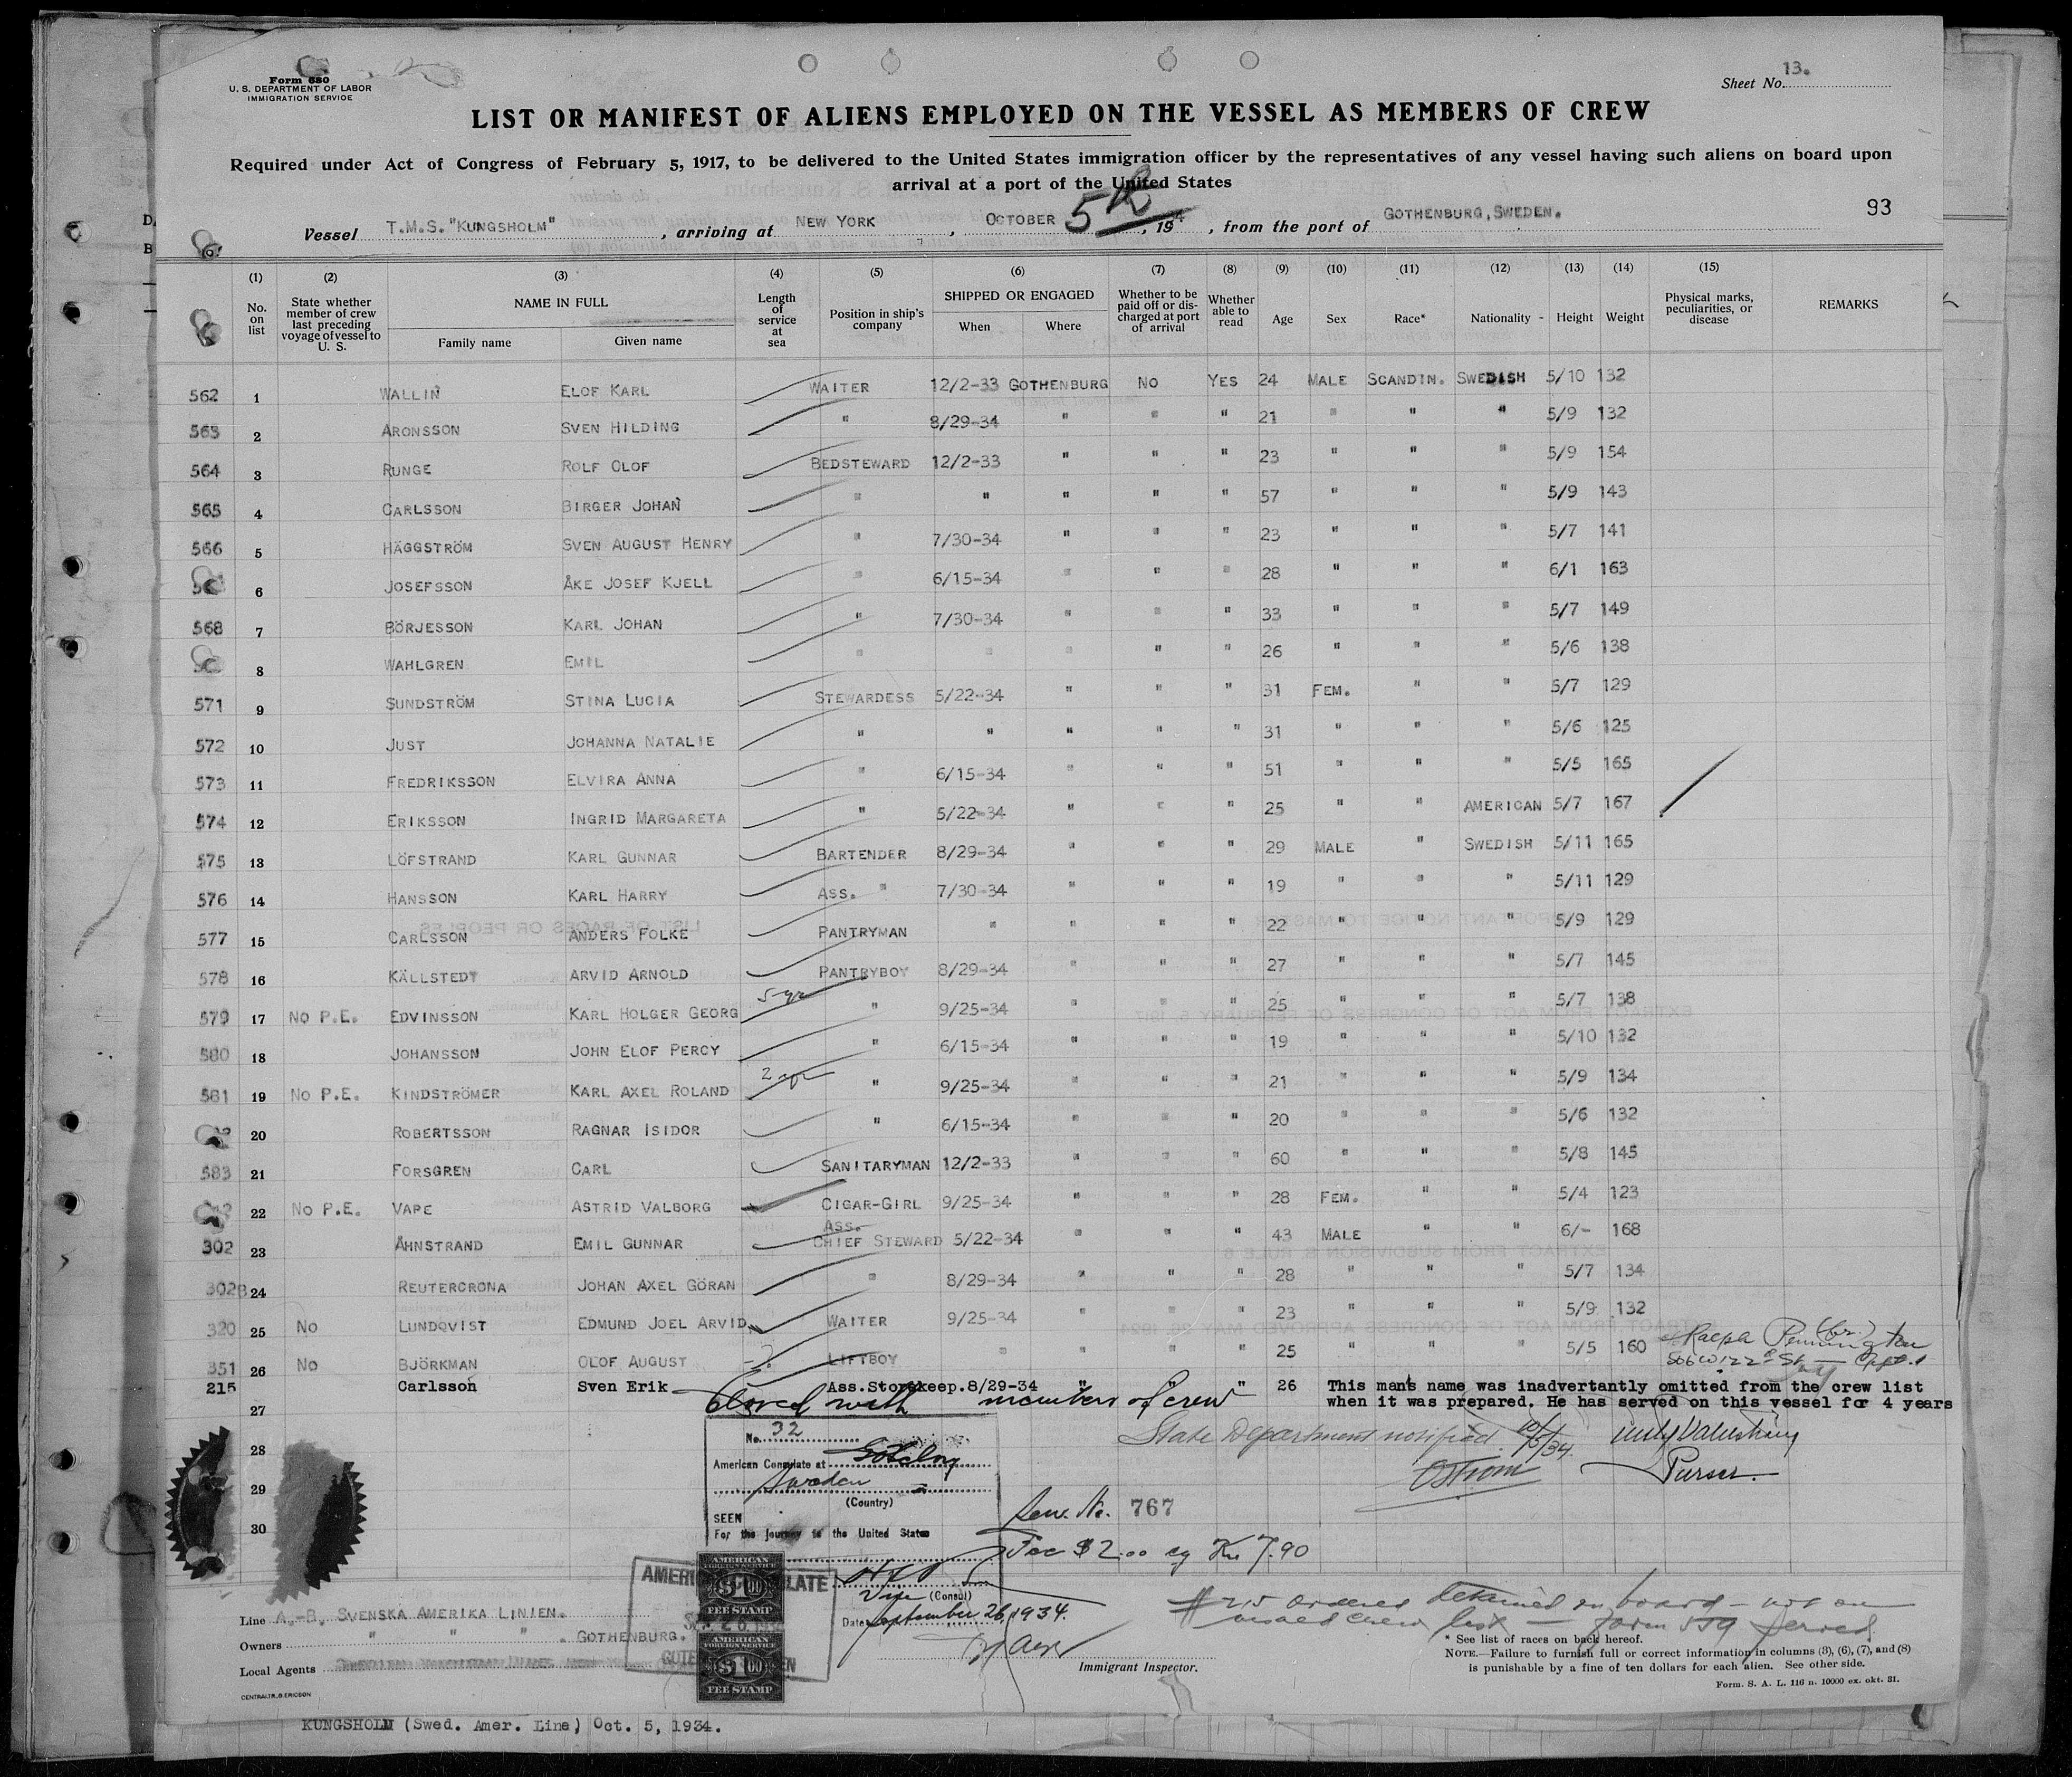 Form 680
U. S. DEPARTMENT OF LABOR
IMMIGRATION SERVICE
Sheet No. 13.
LIST OR MANIFEST OF ALIENS EMPLOYED ON THE VESSEL AS MEMBERS OF CREW
Required under Act of Congress of February 5, 1917, to be delivered to the United States immigration officer by the representatives of any vessel having such aliens on board upon
arrival at a port of the United States
93
Vessel T.M.S. "KUNGSHOLM", arriving at NEW YORK, OCTOBER 5th, 1934, from the port of GOTHENBURG, SWEDEN.
(1) (2) (3) (4) (5) (6) (7) (8) (9) (10) (11) (12) (13) (14) (15)
No. on list | State whether member of crew last preceding voyage of vessel to U. S. | NAME IN FULL | Family name | Given name | Length of service at sea | Position in ship's company | SHIPPED OR ENGAGED | When | Where | Whether to be paid off or discharged at port of arrival | Whether able to read | Age | Sex | Race* | Nationality | Height | Weight | Physical marks, peculiarities, or disease | REMARKS
562 1 WALLIN ELOF KARL WAITER 12/2-33 GOTHENBURG NO YES 24 MALE SCANDIN. SWEDISH 5/10 132
563 2 ARONSSON SVEN HILDING " 8/29-34 " " " 21 " " " 5/9 132
564 3 RUNGE ROLF OLOF BEDSTEWARD 12/2-33 " " " 23 " " " 5/9 154
565 4 CARLSSON BIRGER JOHAN " " " " " 57 " " " 5/9 143
566 5 HÄGGSTRÖM SVEN AUGUST HENRY " 7/30-34 " " " 23 " " " 5/7 141
6 JOSEFSSON ÅKE JOSEF KJELL " 6/15-34 " " " 28 " " " 6/1 163
568 7 BÖRJESSON KARL JOHAN " 7/30-34 " " " 33 " " " 5/7 149
8 WAHLGREN EMIL " " " " " 26 " " " 5/6 138
571 9 SUNDSTRÖM STINA LUCIA STEWARDESS 5/22-34 " " " 31 FEM. " " 5/7 129
572 10 JUST JOHANNA NATALIE " " " " " 31 " " " 5/6 125
573 11 FREDRIKSSON ELVIRA ANNA " 6/15-34 " " " 51 " " " 5/5 165
574 12 ERIKSSON INGRID MARGARETA " 5/22-34 " " " 25 " " AMERICAN 5/7 167
575 13 LÖFSTRAND KARL GUNNAR BARTENDER 8/29-34 " " " 29 MALE " SWEDISH 5/11 165
576 14 HANSSON KARL HARRY ASS. " 7/30-34 " " " 19 " " " 5/11 129
577 15 CARLSSON ANDERS FOLKE PANTRYMAN " " " " 22 " " " 5/9 129
578 16 KÄLLSTEDT ARVID ARNOLD PANTRYBOY 8/29-34 " " " 27 " " " 5/7 145
579 17 NO P.E. EDVINSSON KARL HOLGER GEORG 5 yr " 9/25-34 " " " 25 " " " 5/7 138
580 18 JOHANSSON JOHN ELOF PERCY " 6/15-34 " " " 19 " " " 5/10 132
581 19 NO P.E. KINDSTRÖMER KARL AXEL ROLAND 2 yr " 9/25-34 " " " 21 " " " 5/9 134
20 ROBERTSSON RAGNAR ISIDOR " 6/15-34 " " " 20 " " " 5/6 132
583 21 FORSGREN CARL SANITARYMAN 12/2-33 " " " 60 " " " 5/8 145
22 NO P.E. VAPE ASTRID VALBORG CIGAR-GIRL 9/25-34 " " " 28 FEM. " " 5/4 123
302 23 ÅHNSTRAND EMIL GUNNAR ASS. CHIEF STEWARD 5/22-34 " " " 43 MALE " " 6/- 168
302B 24 REUTERCRONA JOHAN AXEL GÖRAN " 8/29-34 " " " 28 " " " 5/7 134
320 25 NO LUNDQVIST EDMUND JOEL ARVID WAITER 9/25-34 " " " 23 " " " 5/9 132
351 26 NO BJÖRKMAN OLOF AUGUST LIFTBOY " " " " 25 " " " 5/5 160 Ralph Pennington (br.)
506 W 122d St Apt. 1
215 Carlsson Sven Erik Ass.Storekeep. 8/29-34 " " " 26 This man's name was inadvertantly omitted from the crew list
when it was prepared. He has served on this vessel for 4 years
27
Closed with members of crew
State Department notified 10/5/34.
Purser.
28
29
30
No. 32
American Consulate at Göteborg
Sweden
(Country)
SEEN
For the journey to the United States
Vice (Consul)
Date September 26, 1934.
Serv. No. 767
Fee $2.00 eq Kr 7.90
AMERICAN
FOREIGN SERVICE
$1.00
FEE STAMP
AMERICAN
FOREIGN SERVICE
$1.00
FEE STAMP
# 215 ordered detained on board - not on
visaed crew list - Form 559 served.
Line A.-B. SVENSKA AMERIKA LINIEN.
Owners " " " GOTHENBURG.
Local Agents
Immigrant Inspector.
* See list of races on back hereof.
NOTE.—Failure to furnish full or correct information in columns (3), (6), (7), and (8)
is punishable by a fine of ten dollars for each alien. See other side.
Form. S. A. L. 116 n. 10000 ex. okt. 31.
CENTRALTR. G. ERICSON
KUNGSHOLM (Swed. Amer. Line) Oct. 5, 1934.